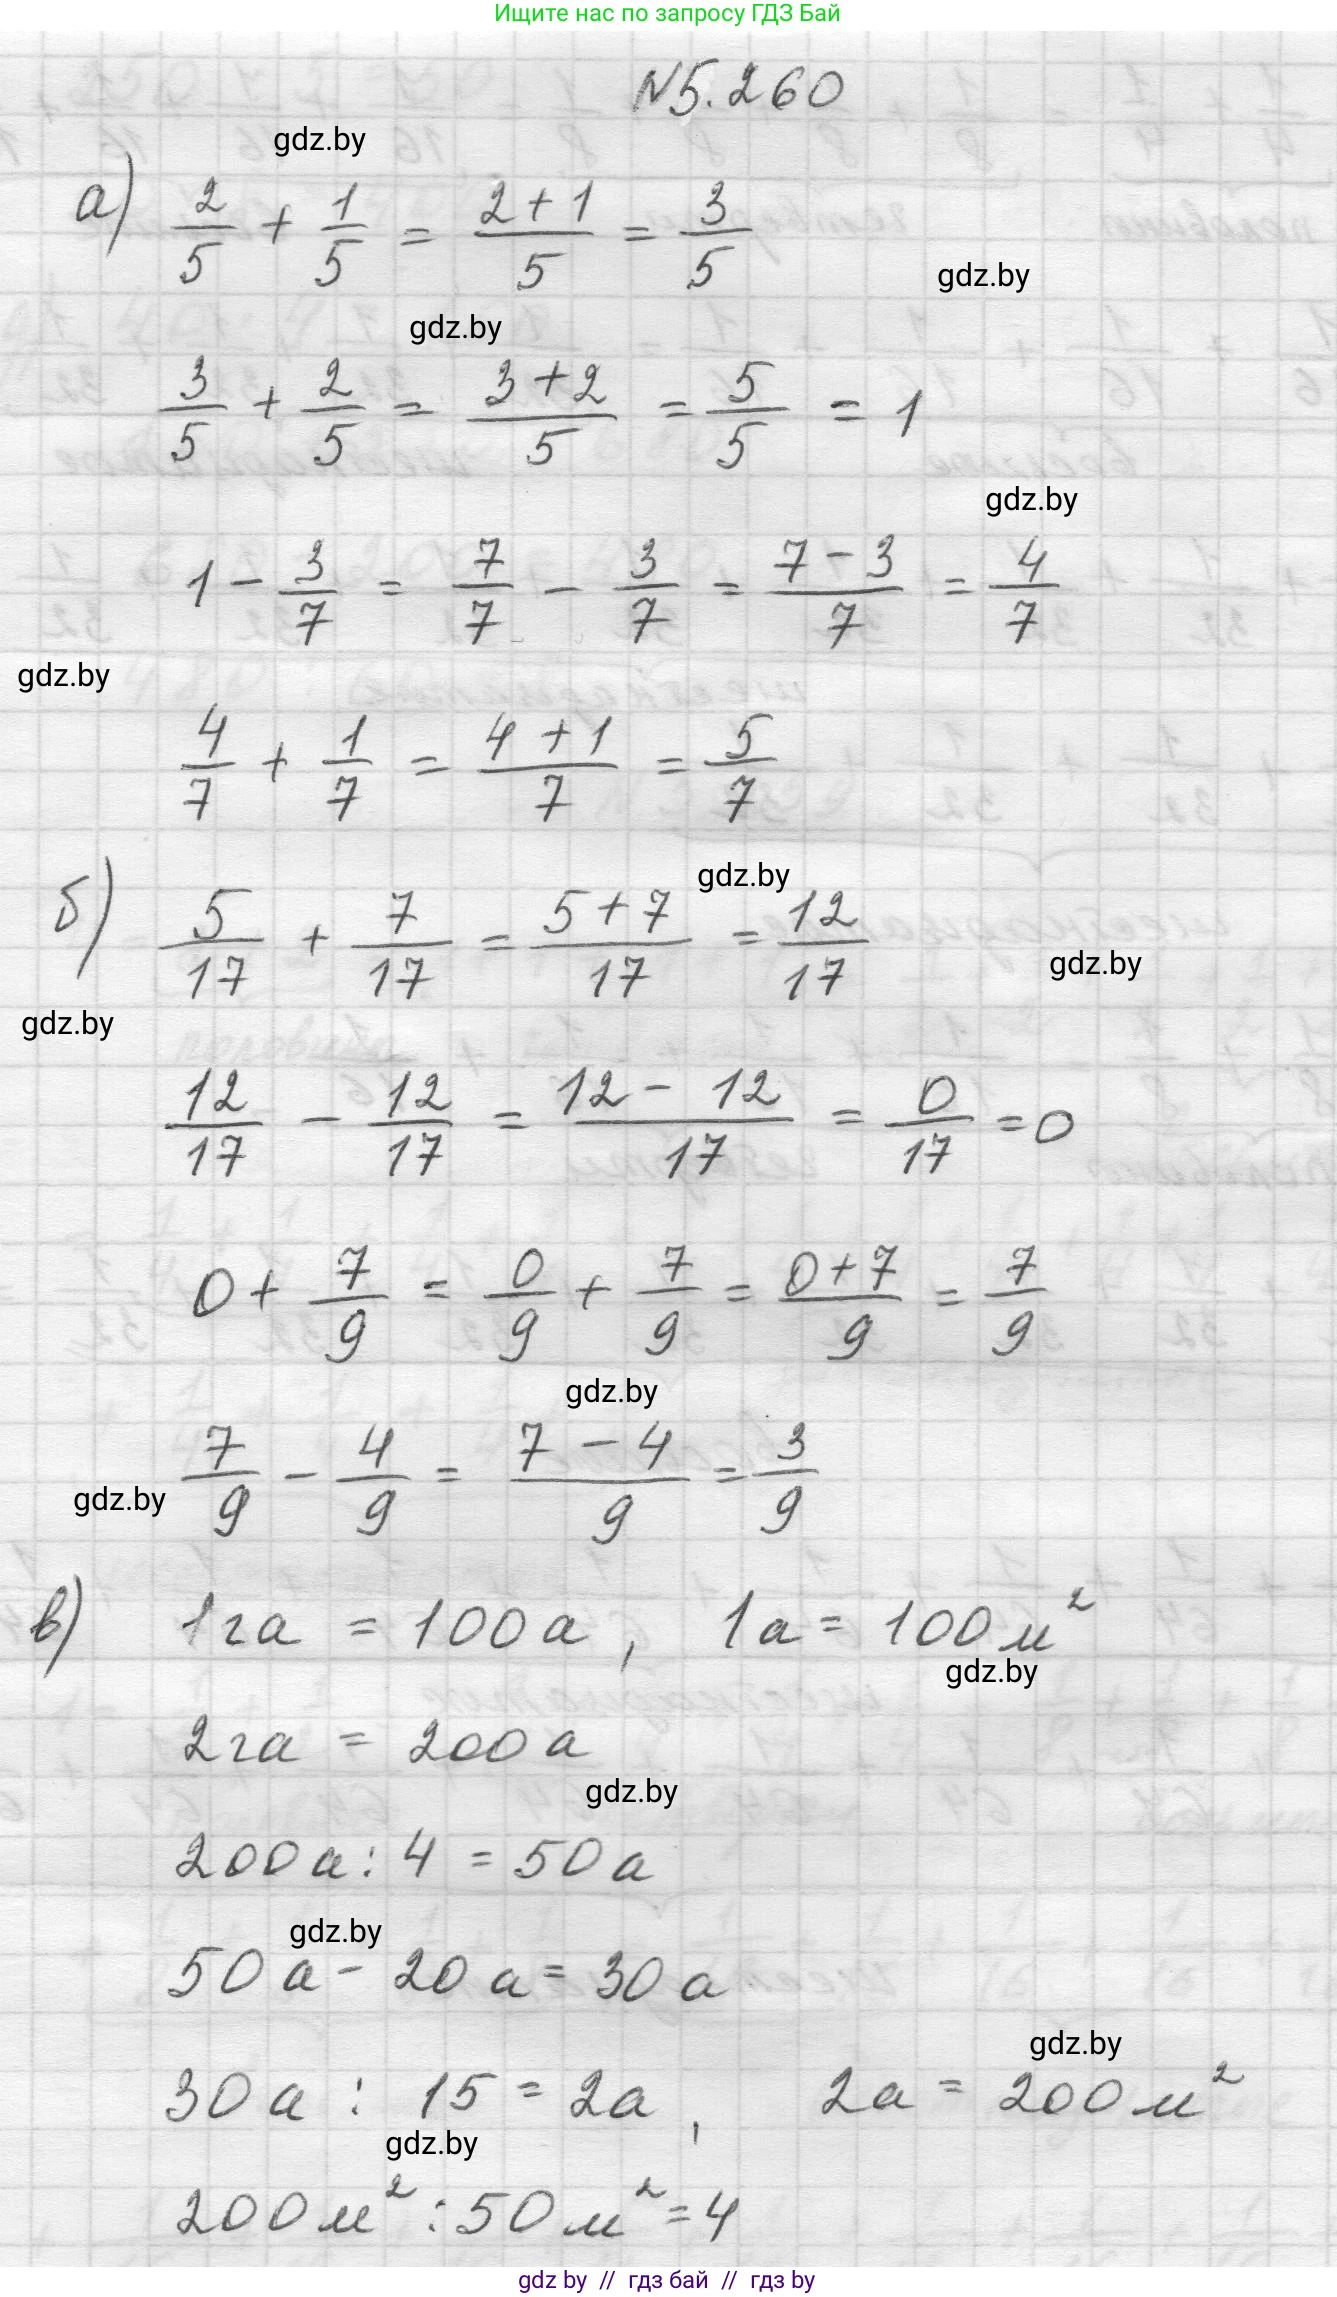 Ищите нас по запросу ГДЗ Бай
N5.260
gdz.by
а) 2/5 + 1/5 = (2+1)/5 = 3/5
gdz.by
gdz.by
3/5 + 2/5 = (3+2)/5 = 5/5 = 1
gdz.by
1 - 3/7 = 7/7 - 3/7 = (7-3)/7 = 4/7
gdz.by
4/7 + 1/7 = (4+1)/7 = 5/7
gdz.by
б) 5/17 + 7/17 = (5+7)/17 = 12/17
gdz.by
gdz.by
12/17 - 12/17 = (12-12)/17 = 0/17 = 0
0 + 7/9 = 0/9 + 7/9 = (0+7)/9 = 7/9
gdz.by
7/9 - 4/9 = (7-4)/9 = 3/9
gdz.by
в) 1га = 100а, 1а = 100м²
gdz.by
2га = 200а
gdz.by
200а : 4 = 50а
gdz.by
50а - 20а = 30а
gdz.by
30а : 15 = 2а, 2а = 200м²
gdz.by
200м² : 50м² = 4
gdz by // гдз бай // гдз by